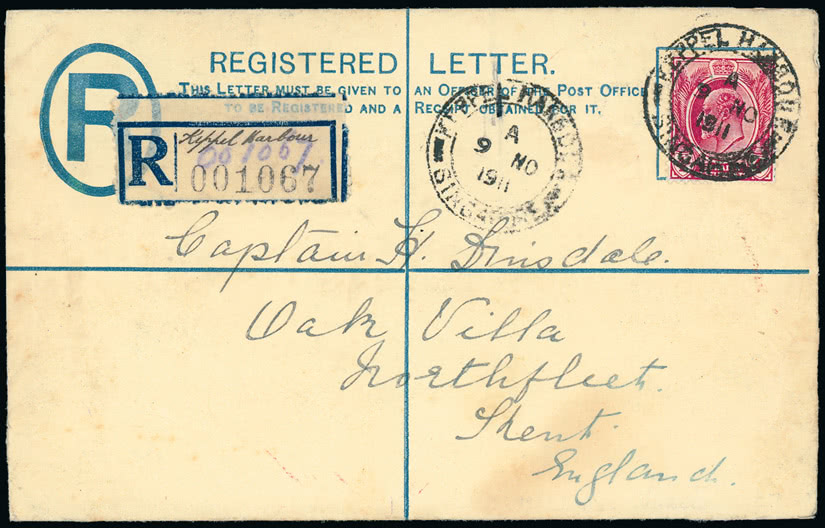 REGISTERED LETTER.
THIS LETTER MUST BE GIVEN TO AN OFFICER OF THE POST OFFICE
TO BE REGISTERED AND A RECEIPT OBTAINED FOR IT.
R
R
Keppel Harbour
001067
001067
KEPPEL HARBOUR
A
9 NO
1911
SINGAPORE
KEPPEL HARBOUR
A
9 NO
1911
SINGAPORE
Captain H. Dinsdale.
Oak Villa
Northfleet.
Kent.
England.